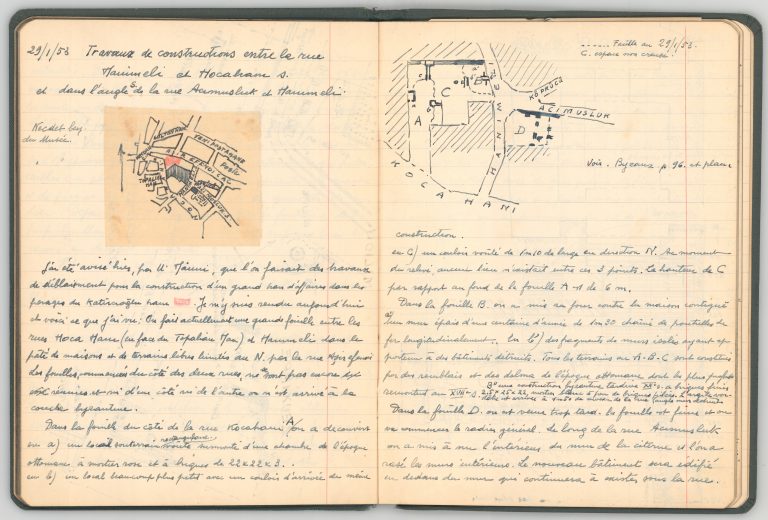 29/1/53 Travaux de constructions entre la rue
Hanimeli et Hocahani s.
et dans l'angle de la rue Acimusluk et Hanimeli
Necdet bey
du Musée.
J'ai été avisé hier, par Mr Mânni, que l'on faisait des travaux
de déblaiement pour la construction d'un grand han d'affaires dans les
parages du Katircioğlu hani. Je m'y suis rendu aujourd'hui
et voici ce que j'ai vu. On fait actuellement une grande fouille entre les
rues Hoca Hani (en face du Topalian Han) et Hanimeli dans le
pâté de maisons et de terrains libres limités au N. par la rue
les fouilles, commencées du côté des deux rues, ne sont pas encore
réunies et ni d'une côté ni de l'autre on n'est arrivé à la
couche byzantine.
Dans la fouille du côté de la rue Hocahani A on a découvert
en a) un local souterrain voûté surmonté d'une chambre de l'époque
ottomane à mortier rose et à briques de 22x22x3.
en b) un local beaucoup plus petit avec un couloir d'arrivée de même
Fouille au 29/1/53.
C. espace non creusé.
A
C
B
D
HANIMELI
KÖPRÜCÜ
ACIMUSLUK
KOCA HANI
Voir. Byzance p. 96. et plan
construction.
en c) un couloir voûté de 1m10 de large en direction N. Au moment
du relevé aucun lien n'existait entre ces 3 points. La hauteur de C
par rapport au fond de la fouille A est de 6 m.
Dans la fouille B. on a mis au jour contre la maison contiguë
a) un mur épais d'une centaine d'année de 1m30 chaîné de poutrelles de
fer longitudinalement. En b) des fragments de murs isolés ayant ap-
partenu à des bâtiments détruits. Tous les terrains en A-B-C sont constitués
par des remblais et des débris de l'époque ottomane dont les plus profonds
remontent au XVIIe s.
Dans la fouille D. on est venu trop tard. La fouille est finie et on
va commencer le radier général. Le long de la rue Acimusluk
on a mis à nu l'intérieur du mur de la citerne et l'on a
rasé les murs intérieurs. Le nouveau bâtiment sera édifié
en dedans du mur qui continuera à exister sous la rue.